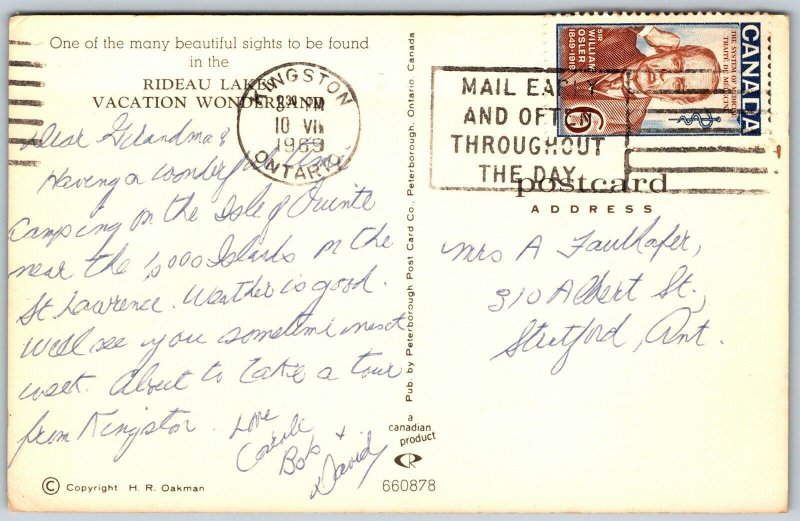 One of the many beautiful sights to be found
in the
RIDEAU LAKES
VACATION WONDERLAND
KINGSTON
PM
10 VII
1969
ONTARIO
MAIL EARLY
AND OFTEN
THROUGHOUT
THE DAY
SIR
WILLIAM
OSLER
1849-1919
CANADA
6
postcard
ADDRESS
Dear Grandma,
Having a wonderful time
Camping on the Isle of Quinte
near the 1,000 Islands on the
St Lawrence. Weather is good.
We'll see you sometime next
week. About to take a tour
from Kingston.
Love
Bob +
David
Mrs A Faulhafer,
310 Albert St.,
Stratford, Ont.
Pub. by Peterborough Post Card Co., Peterborough, Ontario, Canada
a
canadian
product
CR
660878
© Copyright H. R. Oakman